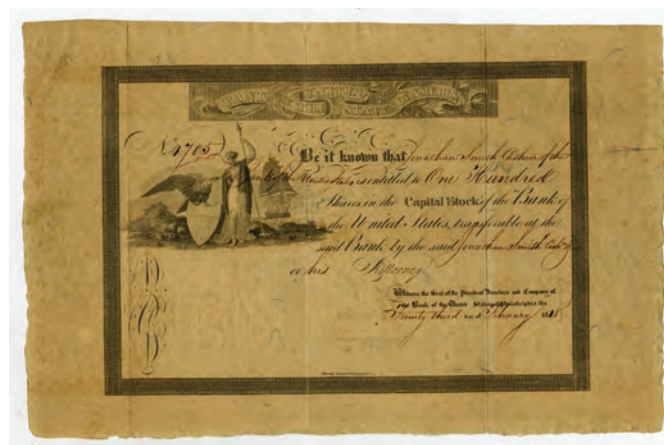 No. 4705
Be it known that Jonathan Smith Cashier of the
Bank of the United States is entitled to One Hundred
Shares in the Capital Stock of the Bank of
the United States, transferable at the
said Bank by the said Jonathan Smith Cash
or his Attorney.
Witness the Seal of the President Directors and Company of
the Bank of the United States at Philadelphia the
Twenty third day of February 18